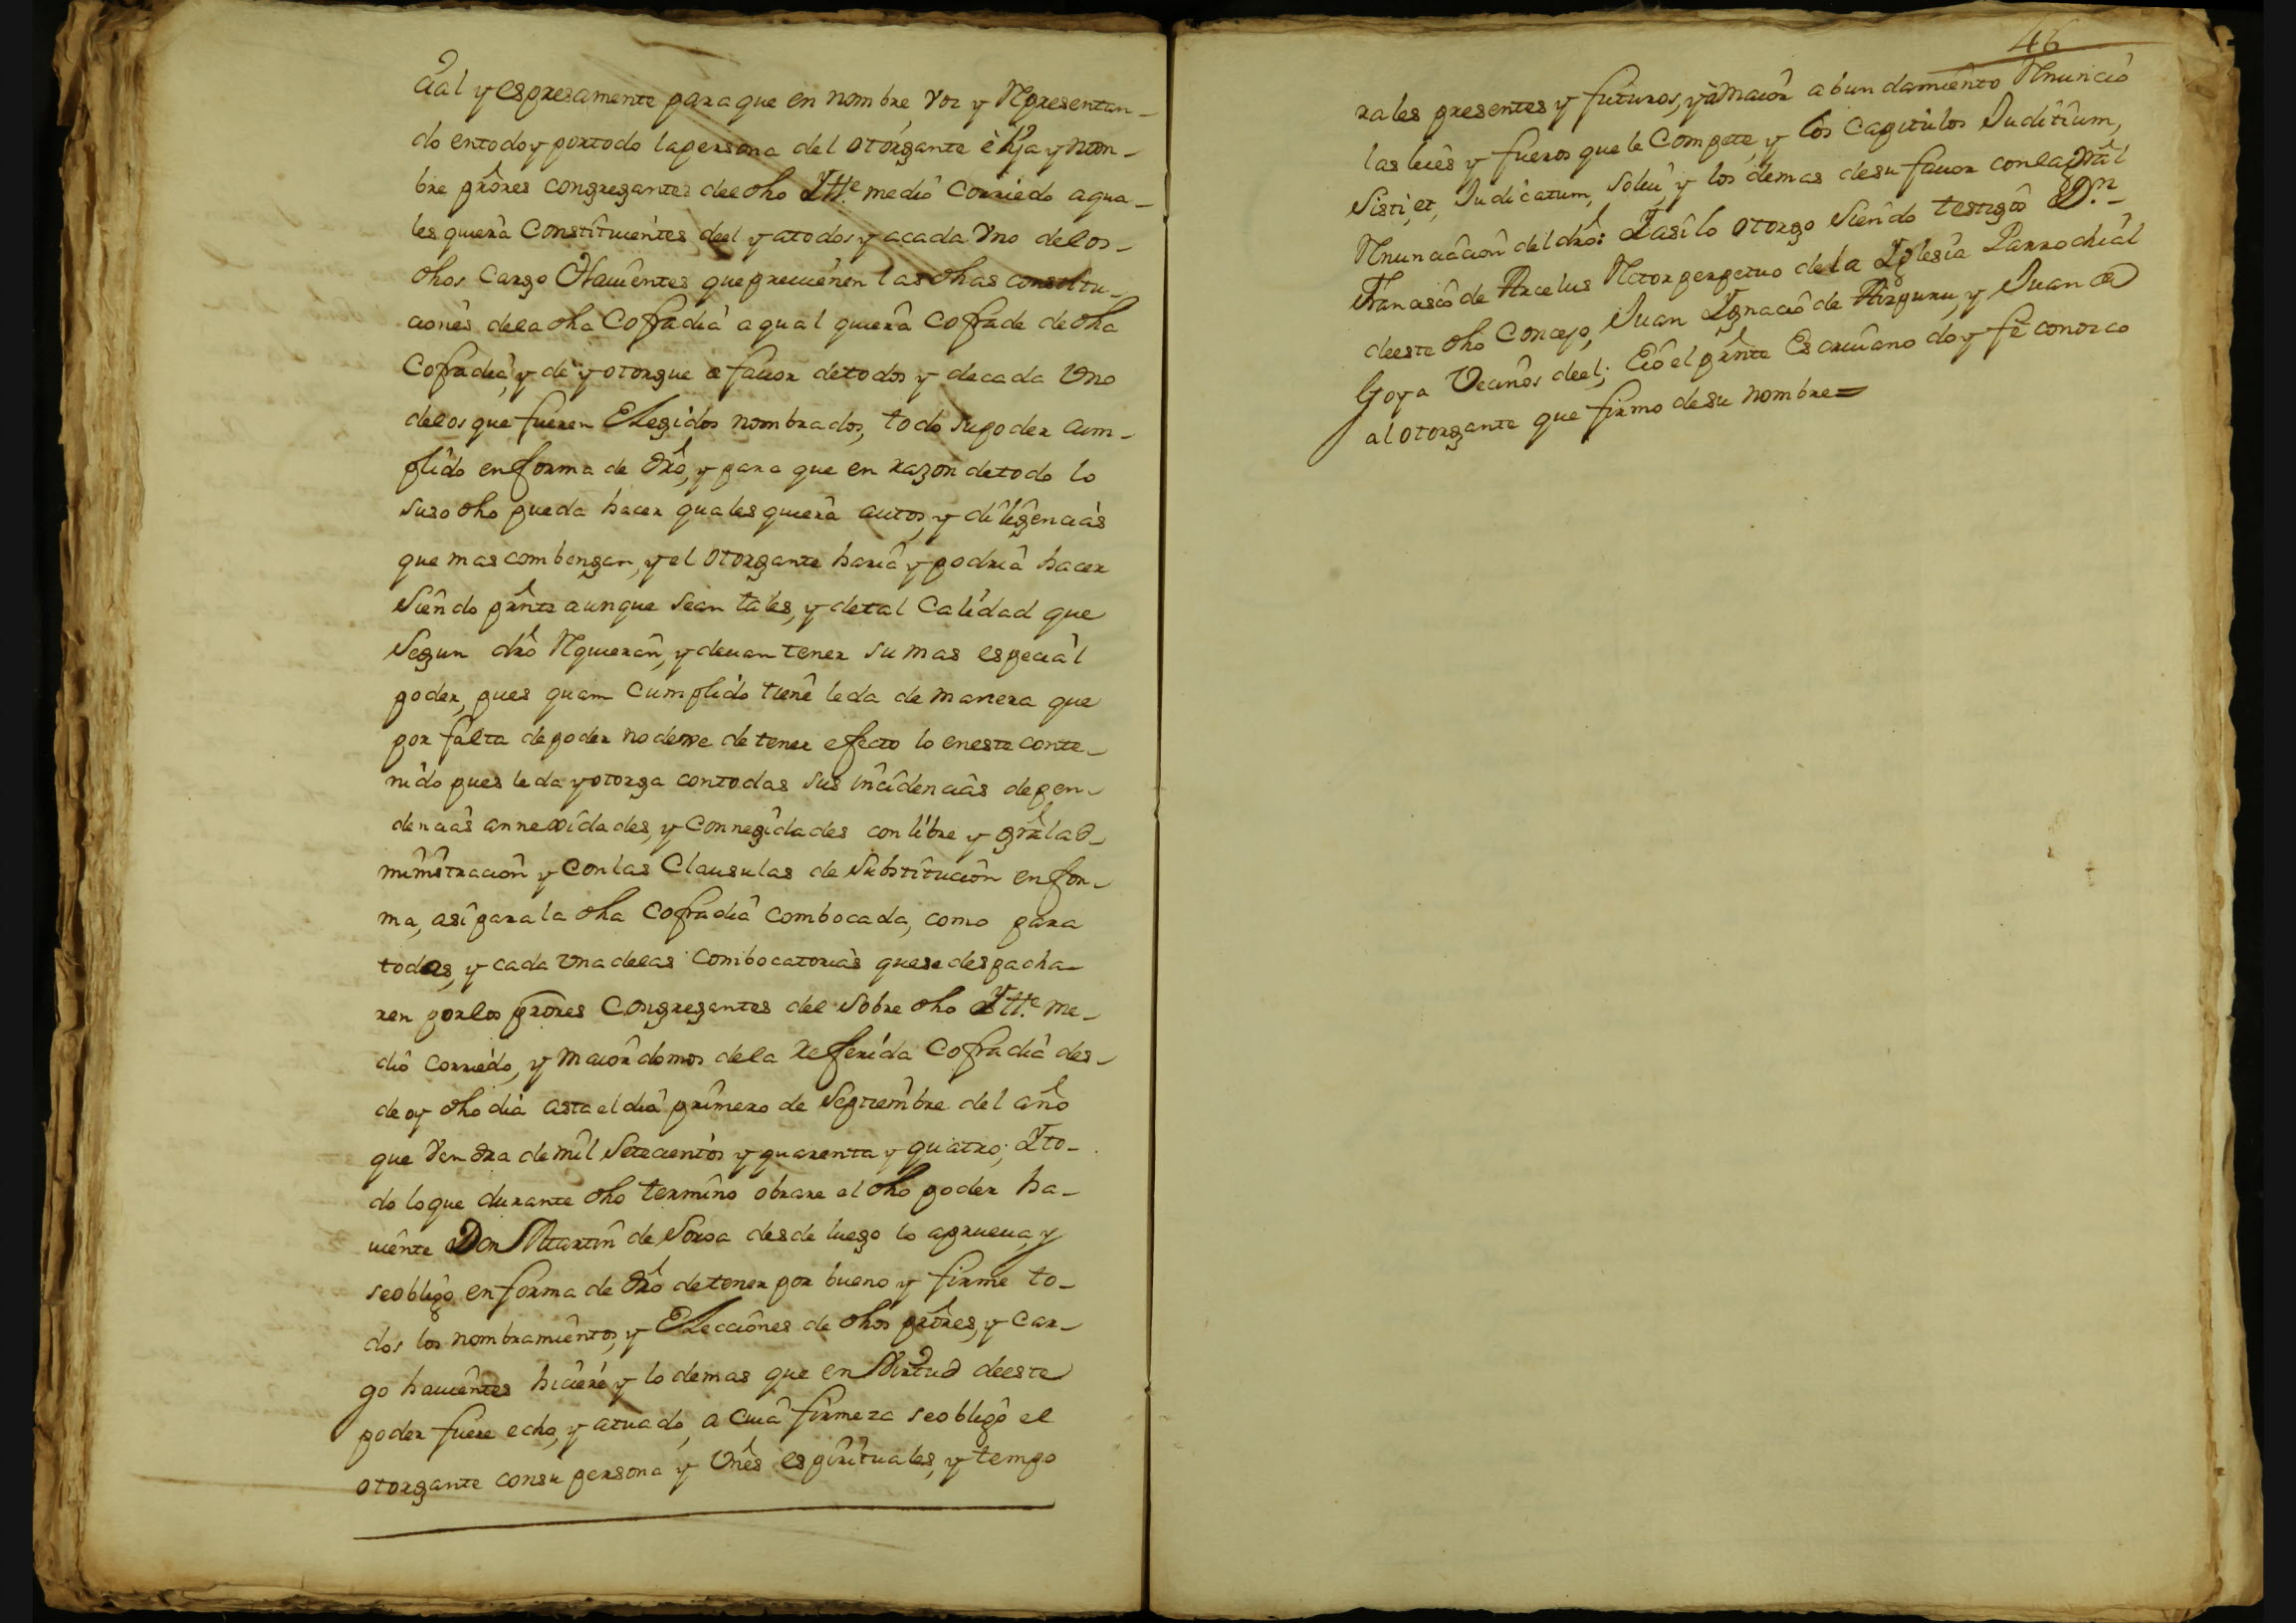 cial y espresamente para que en nombre, voz y Representan-
do entodo y portodo lapersona del otorgante elija y nom-
bre priôres congregantes deeldho Yltt.e medio Corriedo aqua-
lesquiera Constituientes deel y atodos y acada Vno delos-
dhos cargo Havientes que previenen las dhas constitu-
ciones dela dha Cofradia aqualquiera Cofrade de dha
Cofradia, y dé y otorgue a favor detodos y decada Vno
delos que fueren Elegidos nombrados, todo supoder cum-
plido enforma de drô, y para que en razon detodo lo
suso dho pueda hacer qualesquiera autos, y diligencias
que mas combengan, y el otorgante haria y podria hacer
siendo prênte aunque sean tales, y detal Calidad que
segun drô Requieran, y devan tener su mas especial
poder, pues quam Cumplido tiene leda de manera que
por falta depoder nodexe de tener efecto lo eneste conte-
nido pues leda yotorga contodas sus incidencias depen-
dencias annexidades, y connexidades con libre y grâl ad-
ministracion y Conlas Clausulas de Substitucion enfor-
ma, asi para la dha Cofradia combocada, como para
todas, y cada Vna delas combocatorias quese despacha-
ren porlos priôres Congregantes del sobre dho Yltt.e me-
dio corriedo, y maiordomos dela Referida Cofradia des-
de oy dho dia asta el dia primero de Septiembre del año
que Vendra de mil Setecientos y quarenta y quatro; Yto-
do loque durante dho termino obrare el dho poder ha-
viente Don Martin de Soroa desde luego lo aprueva, y
seobligó enforma de drô detener por bueno y firme to-
dos los nombramientos, y Elecciones de dhos priôres, y Car-
go havientes hiciere y lo demas que en Virtud deeste
poder fuere echo, y atuado, a cuia firmeza seobligó el
otorgante consu persona y Vnês espirituales, y tempo
46
rales presentes y futuros, y à maior abundamiento Renunció
las leies y fueros que le Compete, y los Capitulos Juditium,
Sisti, et, Judicatum, solui, y los demas desu favor conla grâl
Renunciacion del drô: Y asi lo otorgo siendo testigos D.n
Francisco de Arcelus Retor perpetuo de la Yglesia Parrochial
deeste dho Concejo, Juan Ygnacio de Aizpuru, y Juan de
Goya Vecinos deel; Eio el prênte Escrivano doy fe conozco
al otorgante que firmo de su nombre=